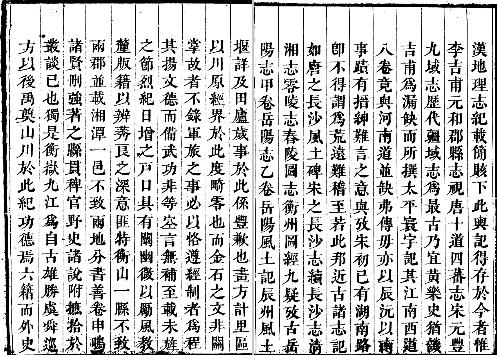 漢地理志紀載簡賅下此輿記得存於今者惟
李吉甫元和郡縣志視唐十道四蕃志宋元豐
九域志歷代疆域志為最古乃宜黃樂史猶譏
吉甫為漏缺而所撰太平寰宇記其江南西道
八卷竟與河南道並缺弗傳毋亦以辰沅以南
事蹟有搢紳難言之意與攷朱初已有湖南路
即不得謂為荒遠難稽至若此那近古諸志記
如唐之長沙風土碑朱之長沙志續長沙志清
湘志零陵志舂陵圖志衡州圖經九疑攷古岳
陽志甲卷岳陽志乙卷岳陽風土記辰州風土
堰詳及田廬歲事於此係豐歉也畫方計里區
以川原經界於此度畸零也而金石之文非關
掌故者不錄軍旅之事必以恪遵經制者為程
其揚文德而備武功非等空言無補至載未旌
之節烈紀日增之戶口具有關幽微以勵風教
釐版籍以辨莠良之深意匪特衡山一縣不致
兩郡並載湘潭一邑不致兩地分書善卷申鳴
諸賢刪強著之縣貫稗官野史諸說附摭拾於
叢談已也獨是衡嶽九江為自古雄勝虞舜巡
方以後禹奠山川於此紀功德焉六籍而外史